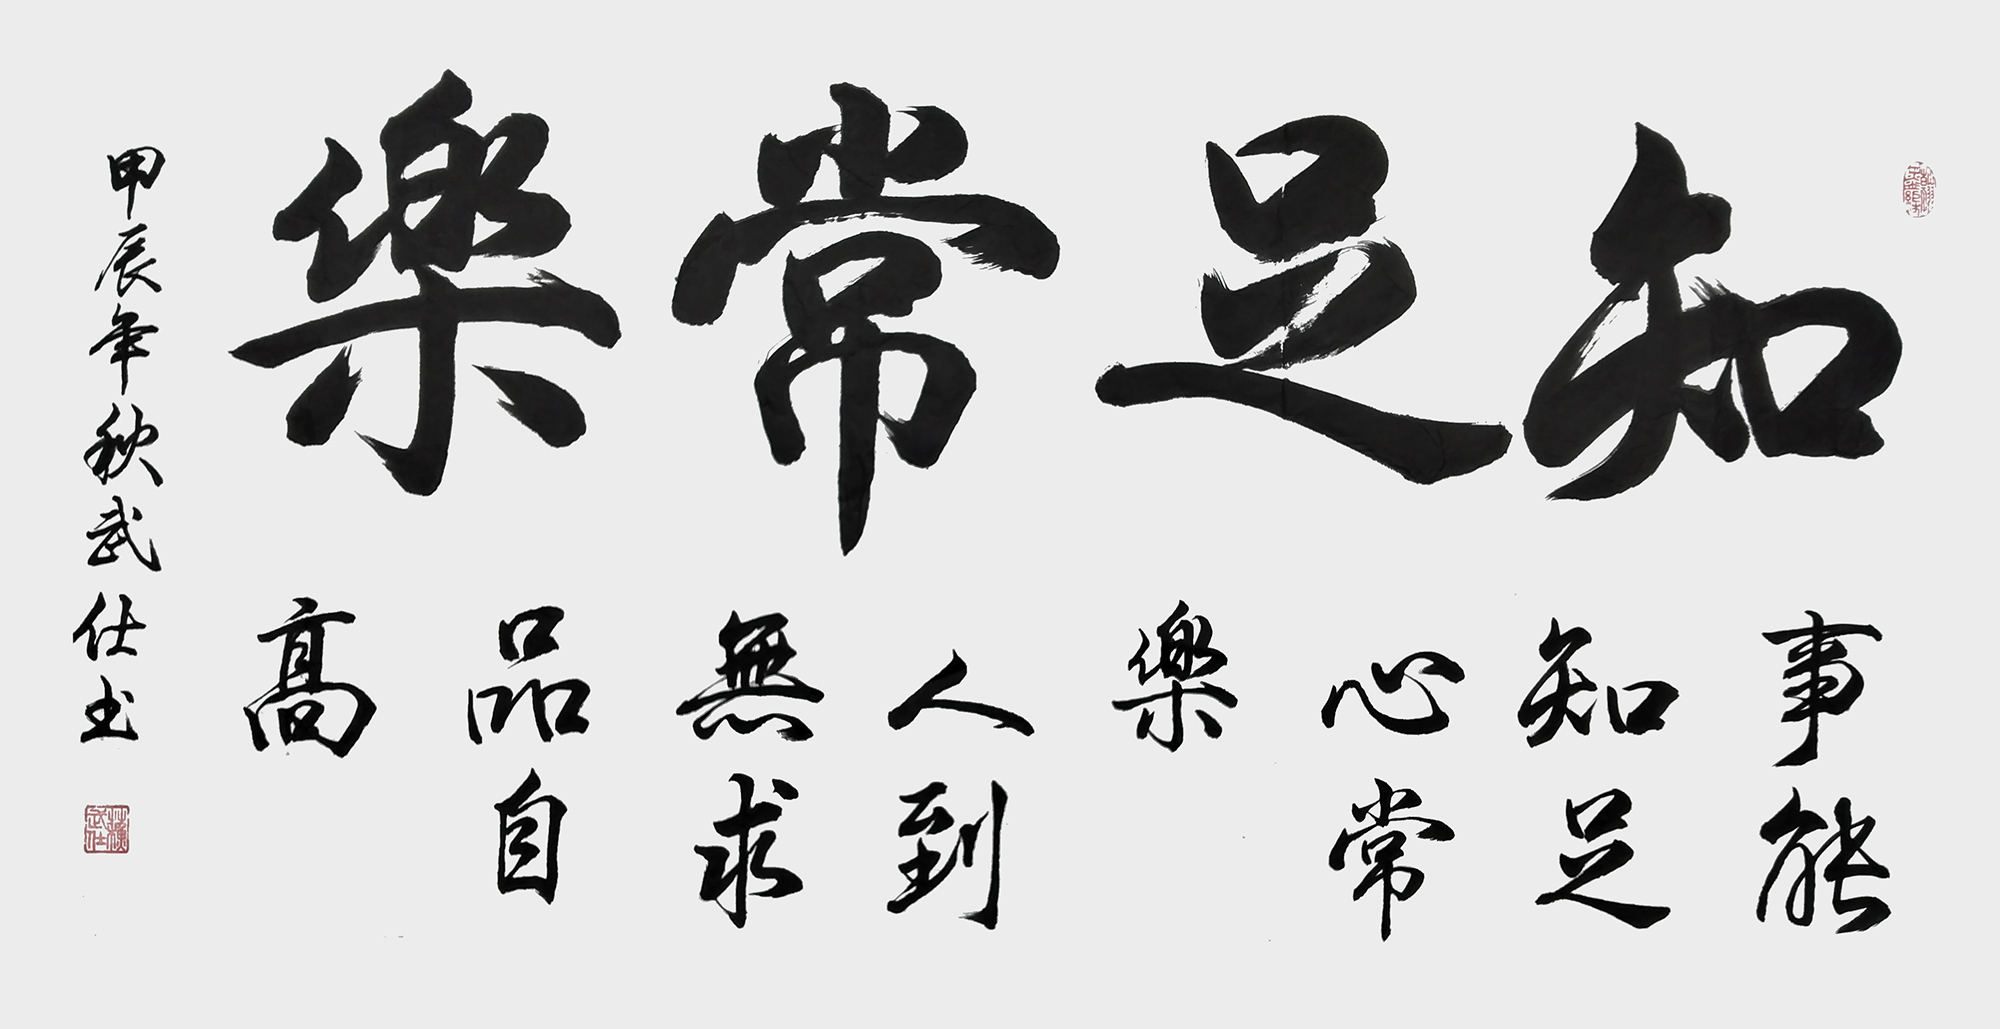 知足常樂
事能
知足
心常
樂
人到
無求
品自
高
甲辰年秋武仕书